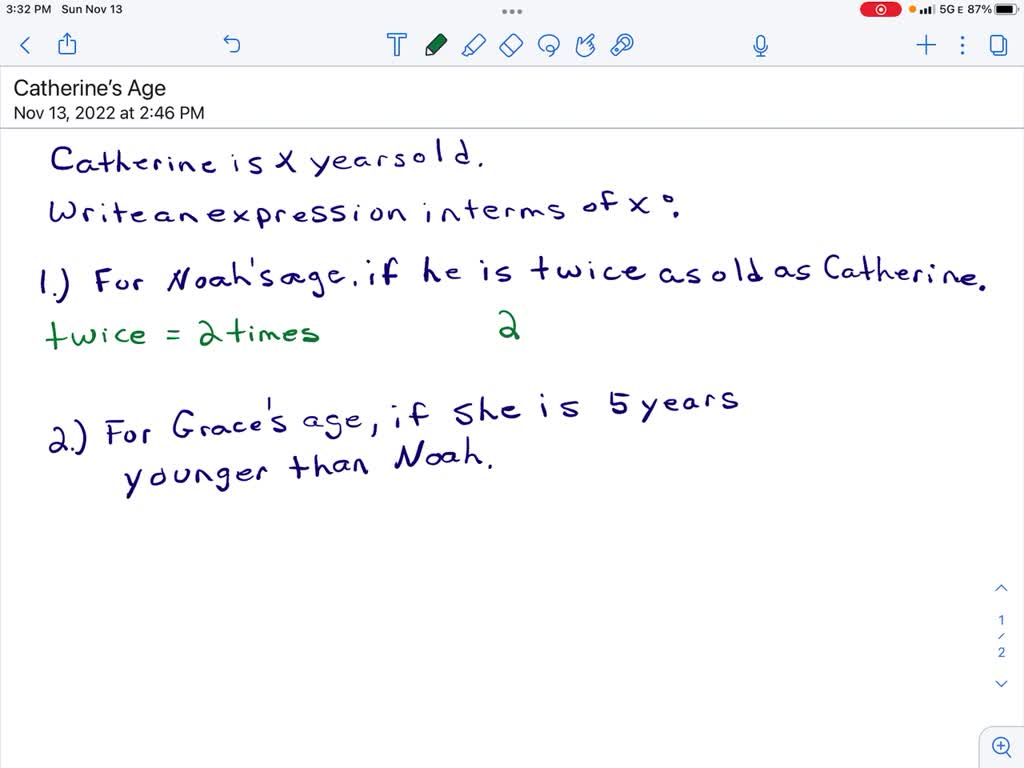 3:32 PM Sun Nov 13
5G E 87%
Catherine's Age
Nov 13, 2022 at 2:46 PM
Catherine is x years old.
Write an expression in terms of x:
1.) For Noah's age, if he is twice as old as Catherine.
twice = 2 times 2
2.) For Grace's age, if she is 5 years
younger than Noah.
1
/
2